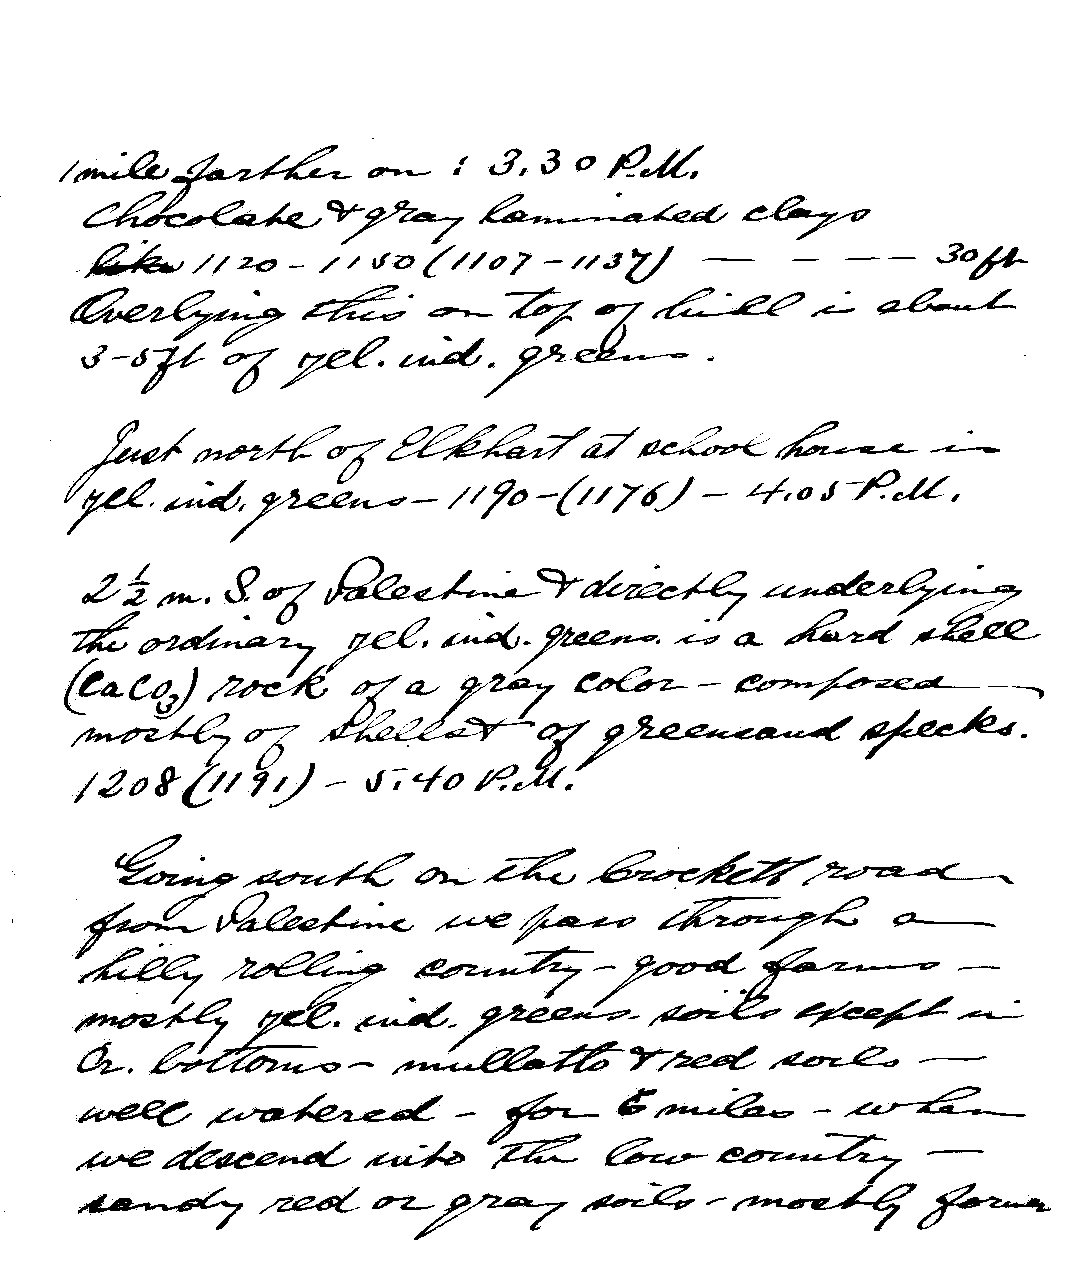 1 mile farther on : 3.30 P.M.
Chocolate & gray laminated clays
like 1120 - 1150 (1107 - 1137) — - - — 30 ft
Overlying this on top of hill is about
3-5 ft of yel. ind. greens.
Just north of Elkhart at school house is
yel. ind. greens - 1190 - (1176) - 4.05 P.M.
2 1/2 m. S. of Palestine & directly underlying
the ordinary yel. ind. greens. is a hard shell
(CaCO3) rock of a gray color - composed
mostly of shells & of greensand specks.
1208 (1191) - 5.40 P.M.
Going south on the Crockett road
from Palestine we pass through a
hilly rolling country - good farms -
mostly yel. ind. greens. soils except in
Cr. bottoms - mullatto & red soils -
well watered - for 6 miles - when
we descend into the low country -
sandy red or gray soils - mostly